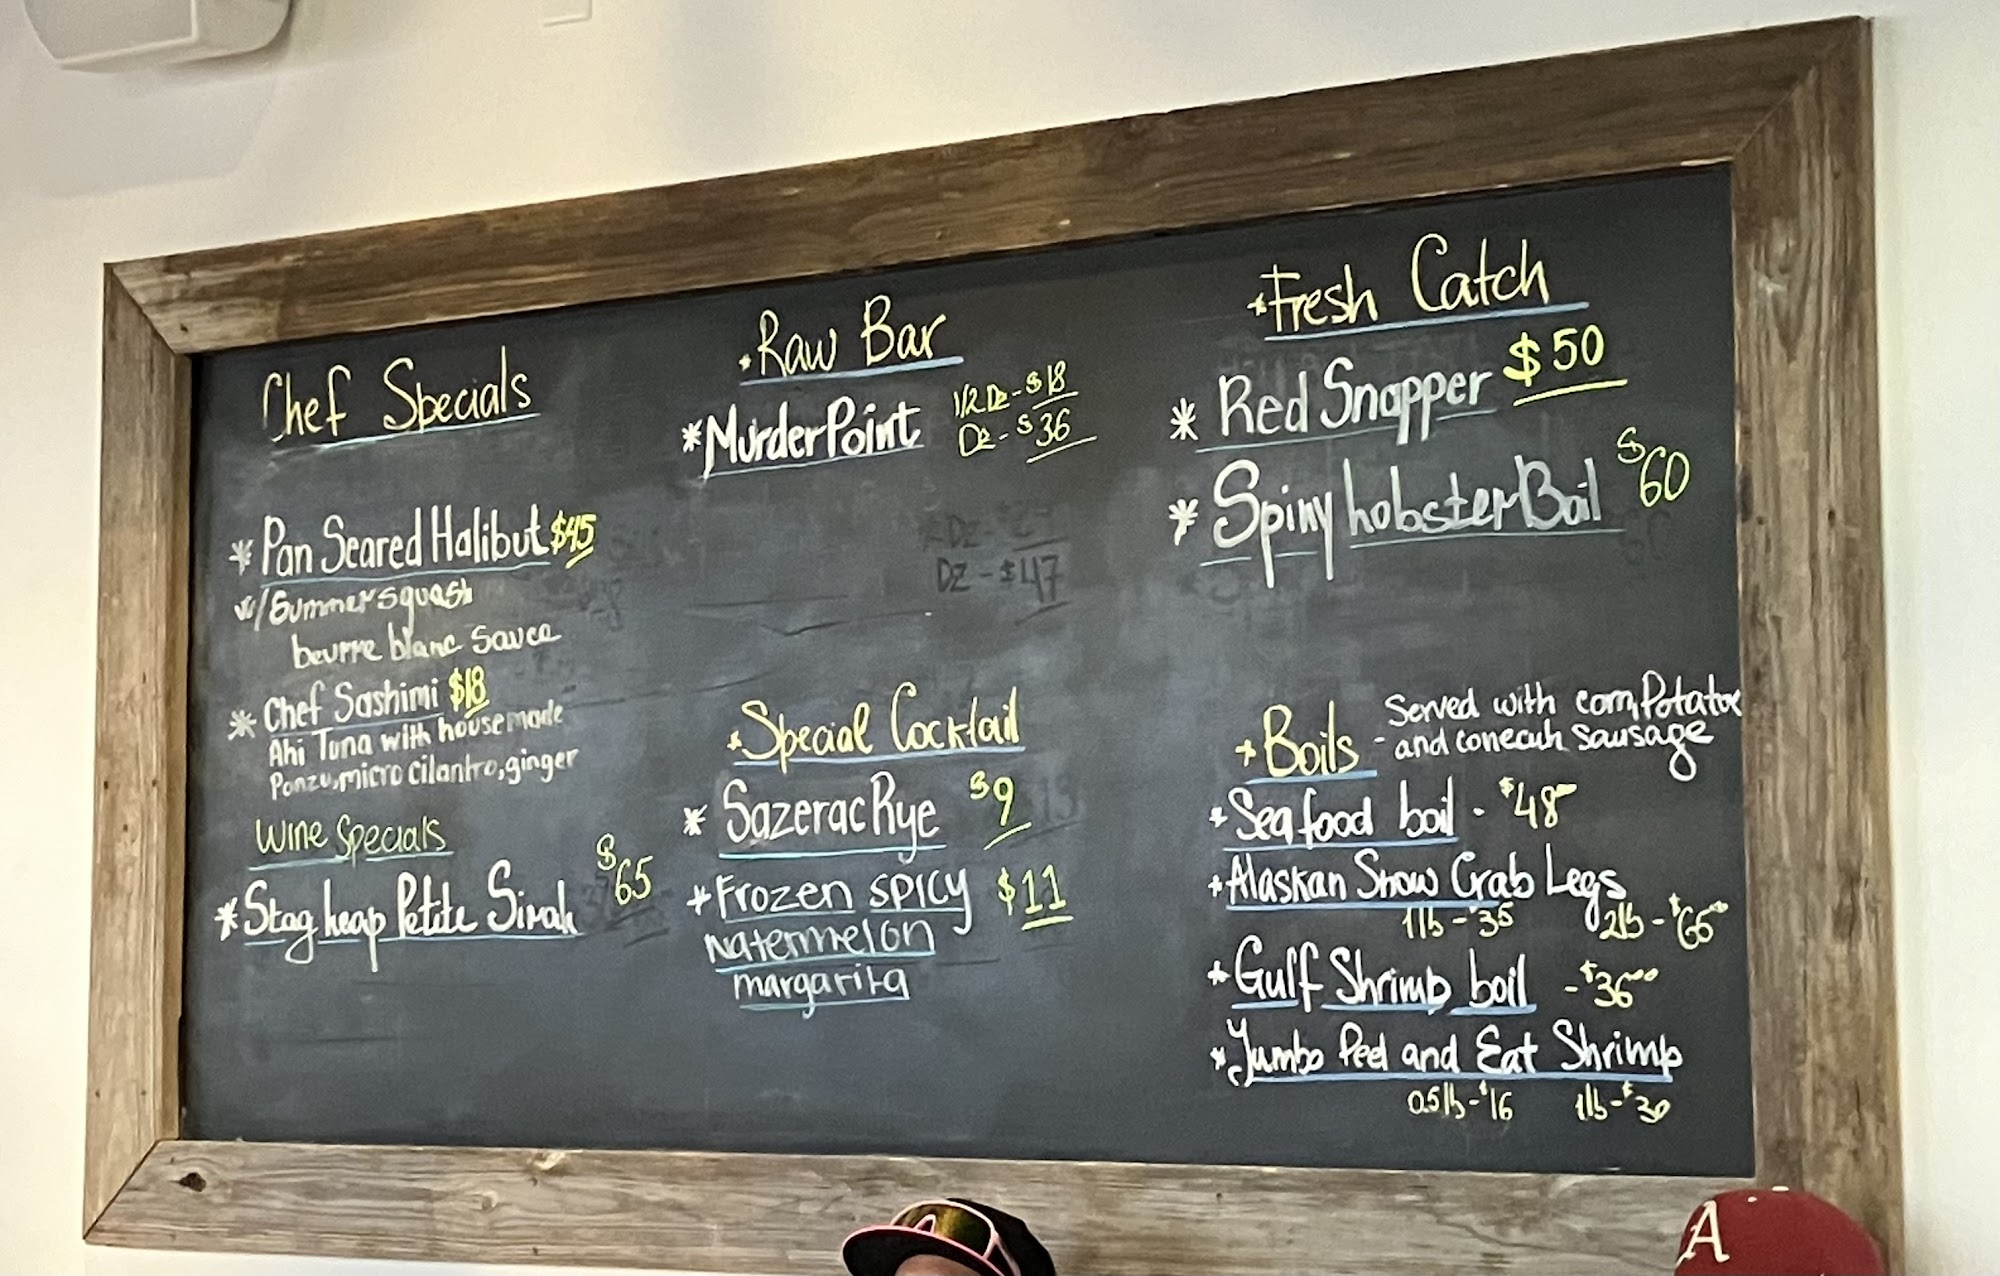 Chef Specials
* Pan Seared Halibut $45
w/Summer squash
beurre blanc sauce
* Chef Sashimi $18
Ahi Tuna with house made
Ponzu, micro cilantro, ginger
Wine Specials
* Stag heap Petite Sirah $65
* Raw Bar
* Murder Point 1/2 Dz - $18
Dz - $36
Dz - $47
* Special Cocktail
* Sazerac Rye $9
* Frozen spicy $11
watermelon
margarita
* Fresh Catch
* Red Snapper $50
* Spiny Lobster Boil $60
* Boils - Served with corn, Potatoe
and conecuh sausage
* Seafood boil - $48
* Alaskan Snow Crab Legs
1lb - $35 2lb - $65
* Gulf Shrimp boil - $36
* Jumbo Peel and Eat Shrimp
0.5lb - $16 1lb - $30
A